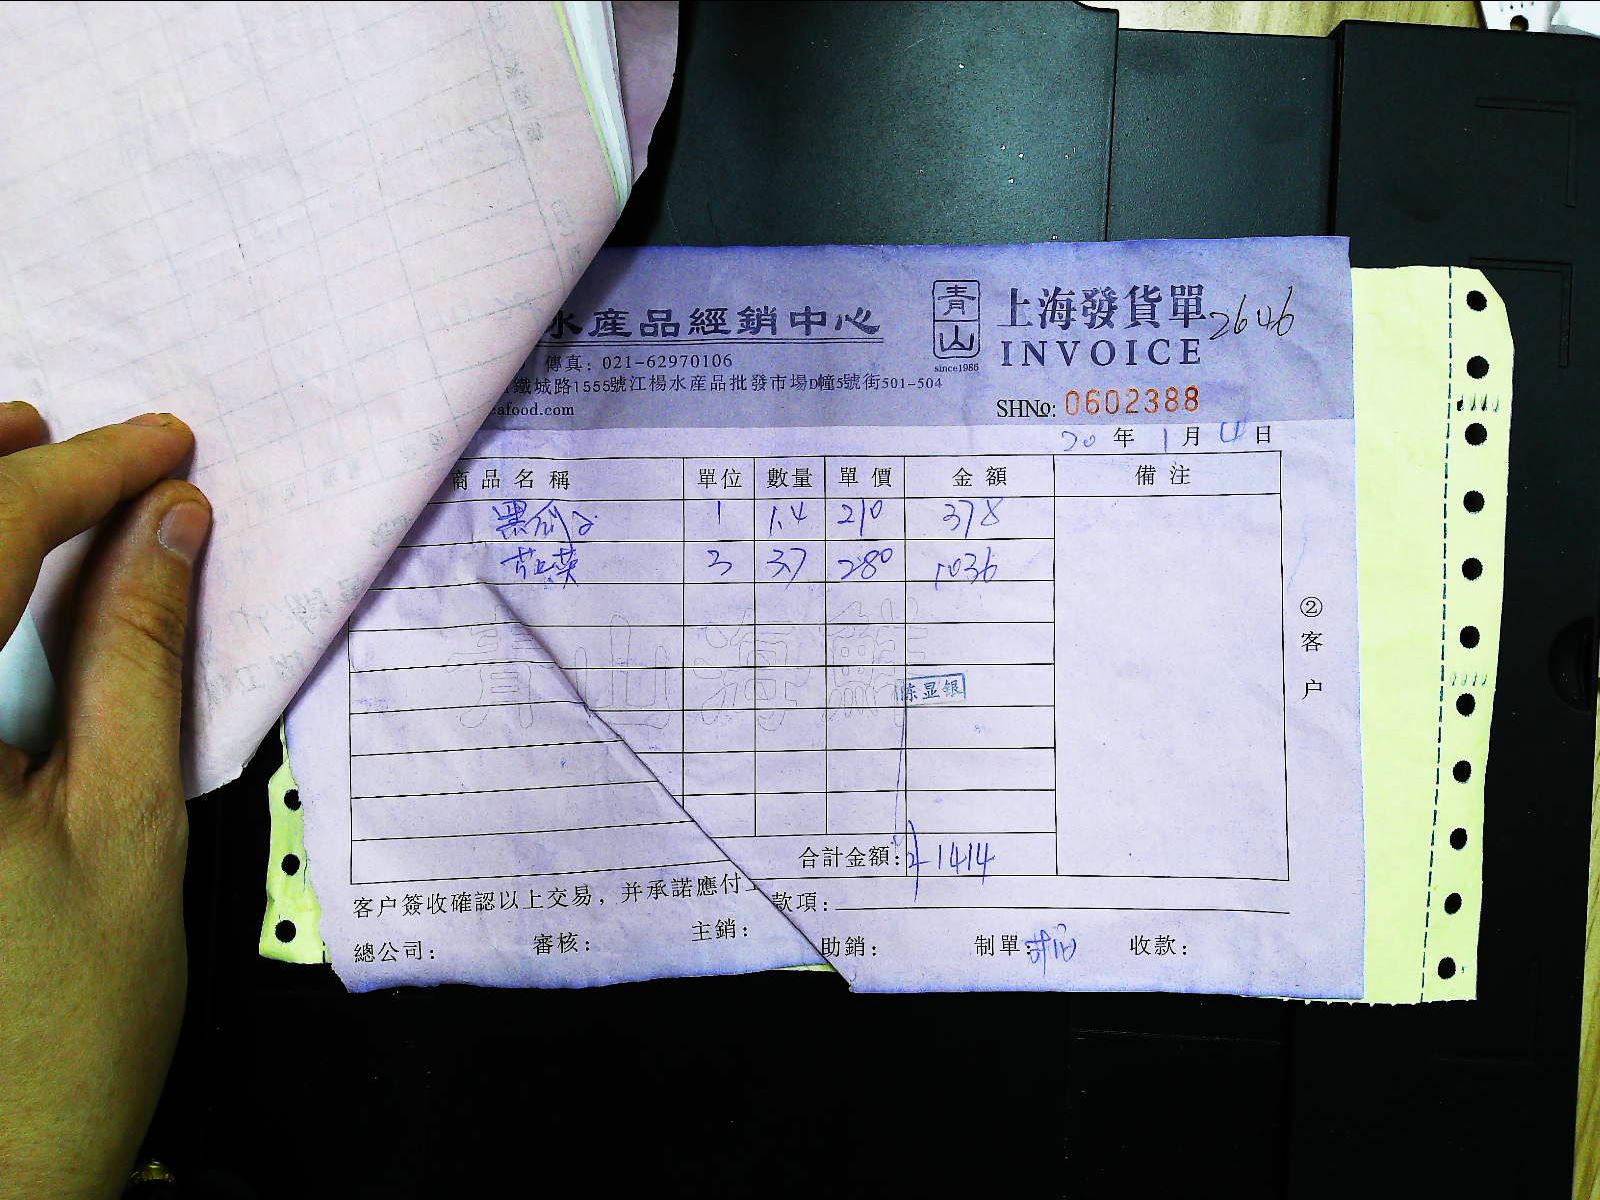 水產品經銷中心
青山
since1986
上海發貨單
2646
INVOICE
傳真：021-62970106
鐵城路1555號江楊水產品批發市場D幢5號街501-504
eafood.com
SHNo: 0602388
20 年 1 月 4 日
商品名稱 單位 數量 單價 金額 備注
1 1.4 210 378
3 3.7 280 1036
青山海鮮
陈显银
② 客户
合計金額： 1414
客户簽收確認以上交易，并承諾應付 款項：
總公司： 審核： 主銷： 助銷： 制單： 收款：